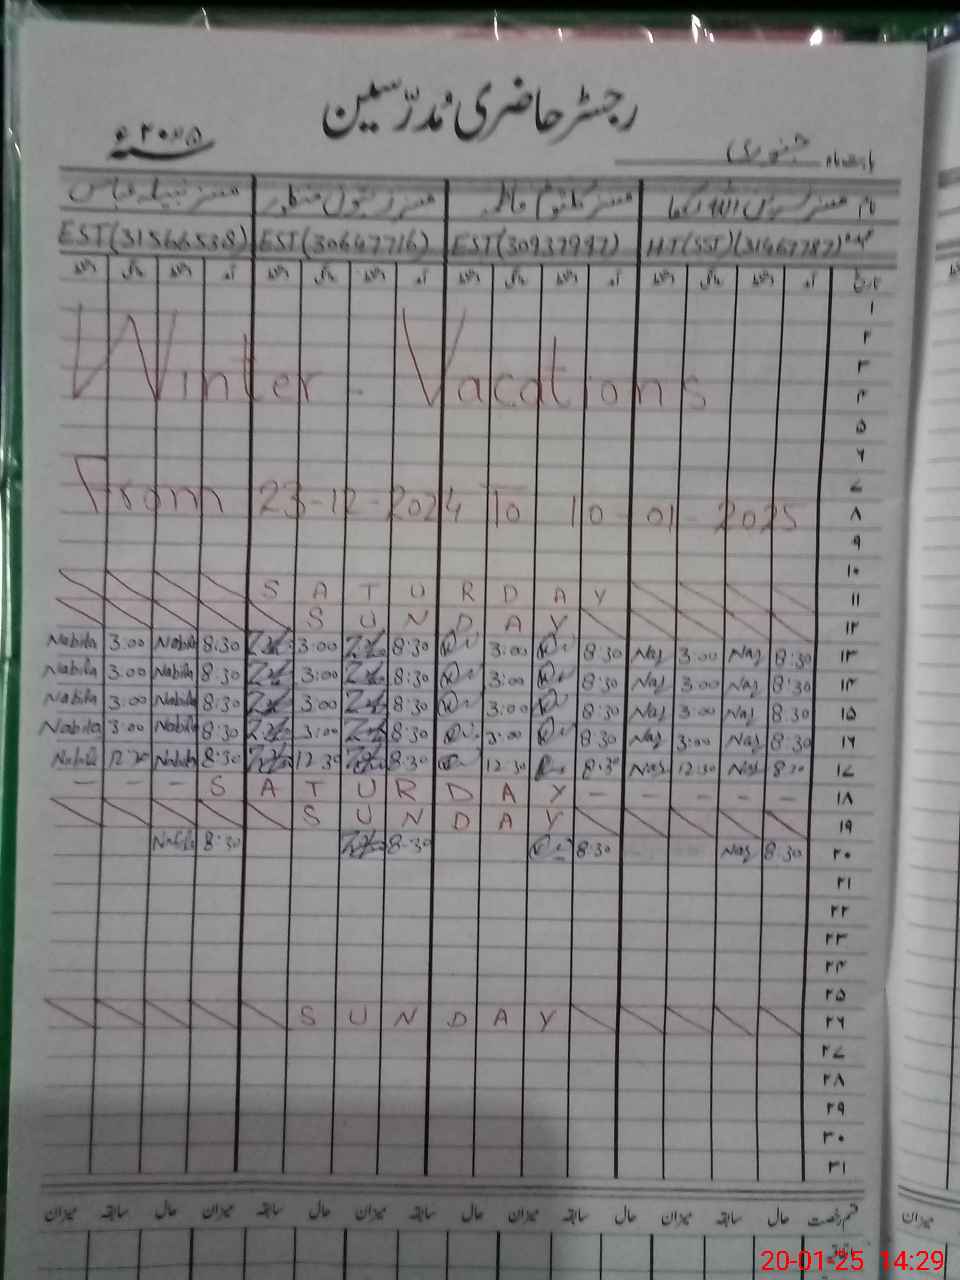 رجسٹر حاضری مُدرّسین
بابت ماہ جنوری ۲۰۲۵ء
نام مسز کلثوم فاطمہ مسز زیتون منظور مسز نبیلہ عباس
عہدہ HT(SST)(31467787) EST(30937997) EST(30647716) EST(31566538)
تاریخ آمد دستخط روانگی دستخط آمد دستخط روانگی دستخط آمد دستخط روانگی دستخط آمد دستخط روانگی دستخط
۱
۲
۳
Winter Vacations ۴
۵
۶
۷
From 23-12-2024 To 10-01-2025 ۸
۹
۱۰
SATURDAY ۱۱
SUNDAY ۱۲
Nabila 3:00 Nabila 8:30 3:00 8:30 3:00 8:30 Naz 3:00 Naz 8:30 ۱۳
Nabila 3:00 Nabila 8:30 3:00 8:30 3:00 8:30 Naz 3:00 Naz 8:30 ۱۴
Nabila 3:00 Nabila 8:30 3:00 8:30 3:00 8:30 Naz 3:00 Naz 8:30 ۱۵
Nabila 3:00 Nabila 8:30 3:00 8:30 3:00 8:30 Naz 3:00 Naz 8:30 ۱۶
Nabila 12:30 Nabila 8:30 12:30 8:30 12:30 8:30 Naz 12:30 Naz 8:30 ۱۷
- - - SATURDAY - - - - - ۱۸
SUNDAY ۱۹
Nabila 8:30 8:30 8:30 Naz 8:30 ۲۰
۲۱
۲۲
۲۳
۲۴
۲۵
SUNDAY ۲۶
۲۷
۲۸
۲۹
۳۰
۳۱
قسم رخصت حال سابقہ میزان حال سابقہ میزان حال سابقہ میزان حال سابقہ میزان
میزان
20-01-25 14:29